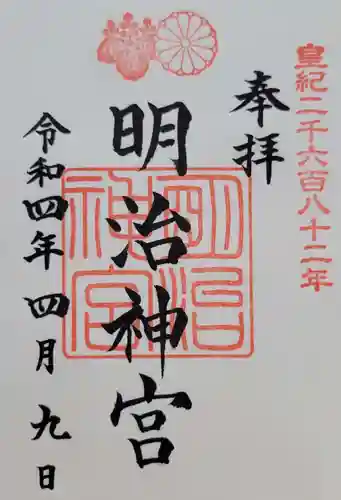 皇紀二千六百八十二年
奉拝
明治神宮
明治神宮
令和四年四月九日